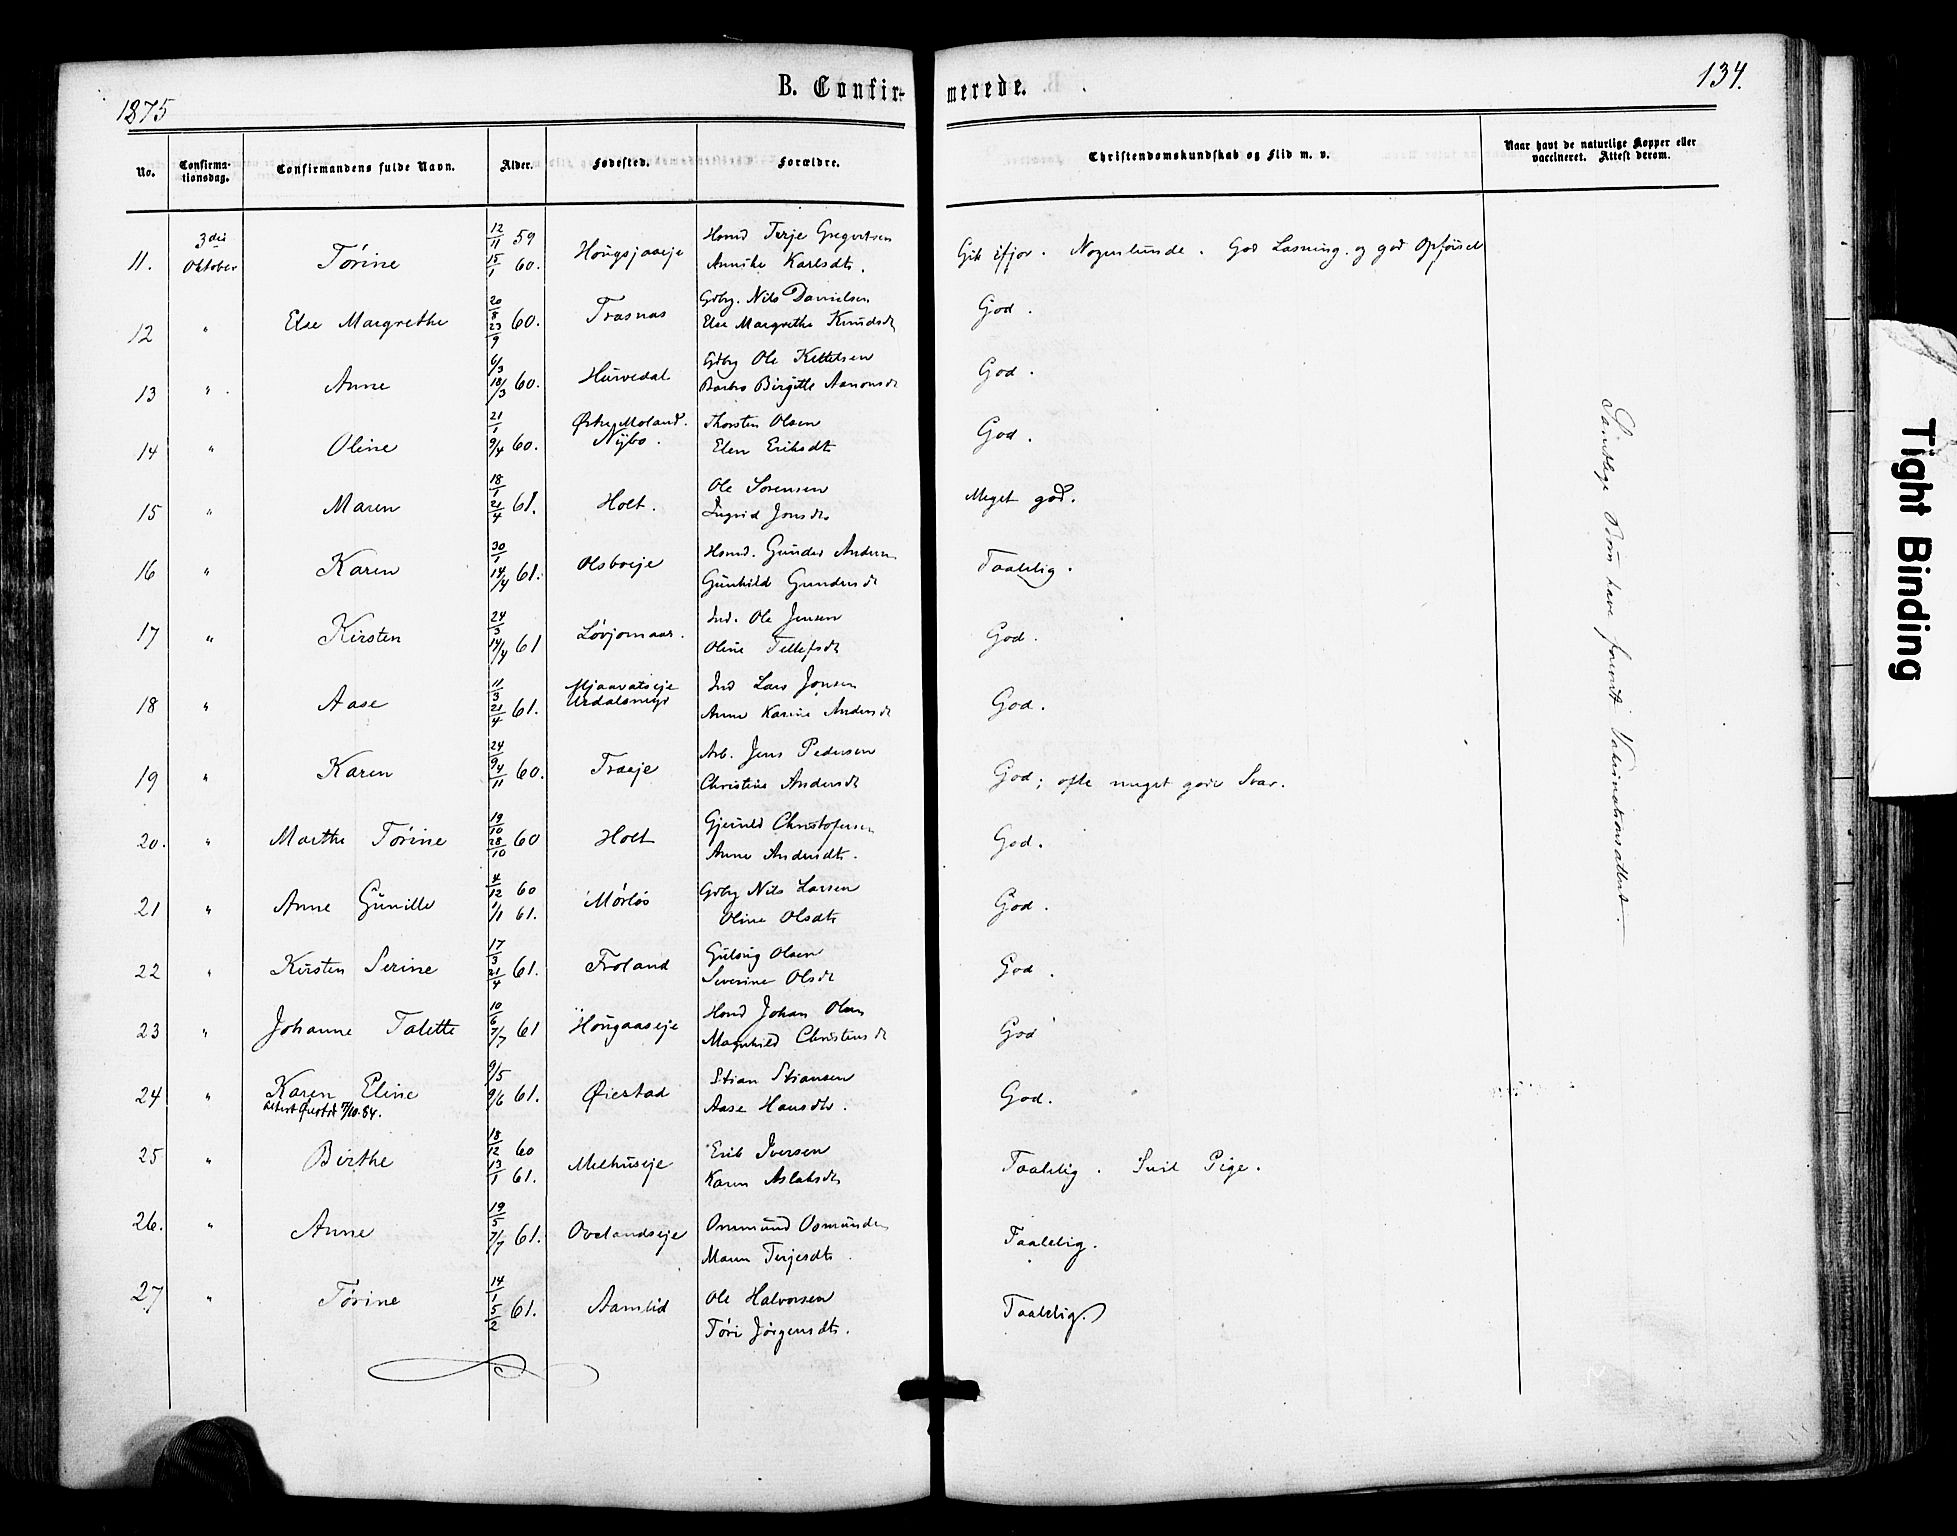 1875
B. Confir-
merede.
134.
No.
Confirma-
tionsdag.
Confirmandens fulde Navn.
Alder.
Fødested.
Forældre.
Christendomskundskab og Flid m. v.
Naar havt de naturlige Kopper eller
vaccineret. Attest derom.
11. 3die Oktober Tørine 12/11 59 15/1 60. Hougsjaaeje Hsmd Terje Gregertsen
Annike Karlsdtr. Gik ifjor. Nogenlunde. God Læsning og god Opførsel
12 " Else Margrethe 20/8 23/9 60. Trøsnæs Gdbr. Nils Danielsen
Else Margrethe Knudsdt God.
13 " Anne 6/3 18/3 60. Hurvedal Gdbr Ole Kittelsen
Barbro Birgitte Aanonsdt God.
14 " Oline 21/1 9/4 60. Østre Moland. Nybo. Thorsten Olsen
Elen Eriksdtr God.
15 " Maren 18/1 21/4 61. Holt. Ole Sørensen
Ingrid Jonsdtr Meget god.
16 " Karen 30/1 14/4 61. Olsboeje Hsmd. Gunder Andersen
Gunhild Gundersdt Taalelig.
17 " Kirsten 24/3 14/4 61 Løvjomaas. Ind. Ole Jensen
Oline Tellefsdt God.
18 " Aase 11/3 21/4 61. Mjaavatseje Urdalsmyr Ind Lars Jonsen
Anne Karine Andersdt God.
19 " Karen 24/9 4/11 60. Traeje Arb. Jens Pedersen
Christine Andersdt God; ofte meget gode Svar.
20. " Marthe Tørine 19/10 28/10 60 Holt Gjeruld Christofersen
Anne Andersdtr. God.
21 " Anne Gunille 4/12 60 1/1 61. Mørløs Gdbr Nils Larsen
Oline Olsdtr God.
22 " Kirsten Serine 17/3 21/4 61. Froland Gulovig Olsen
Severine Olsdt God.
23 " Johanne Talette 10/6 7/7 61 Hougaaseje Hsmd Johan Olsen
Magnhild Christensdt God
24 " Karen Eline 9/5 9/6 61. Øiestad Stian Stiansen
Aase Hansdtr. God.
Attest Øiestad 7/10.84.
25 " Birthe 18/12 60 13/1 61. Melhuseje Erik Iversen
Karen Aslaksdt Taalelig. Snil Pige.
26. " Anne 19/5 7/7 61. Ovelandseje Ommund Osmundsen
Maren Terjesdtr. Taalelig.
27 " Tørine 14/1 5/2 61. Aamlid Ole Halvorsen
Tøri Jørgensdtr. Taalelig.
Samtlige Som have foreviist Vaksinationsattest.
Tight Binding